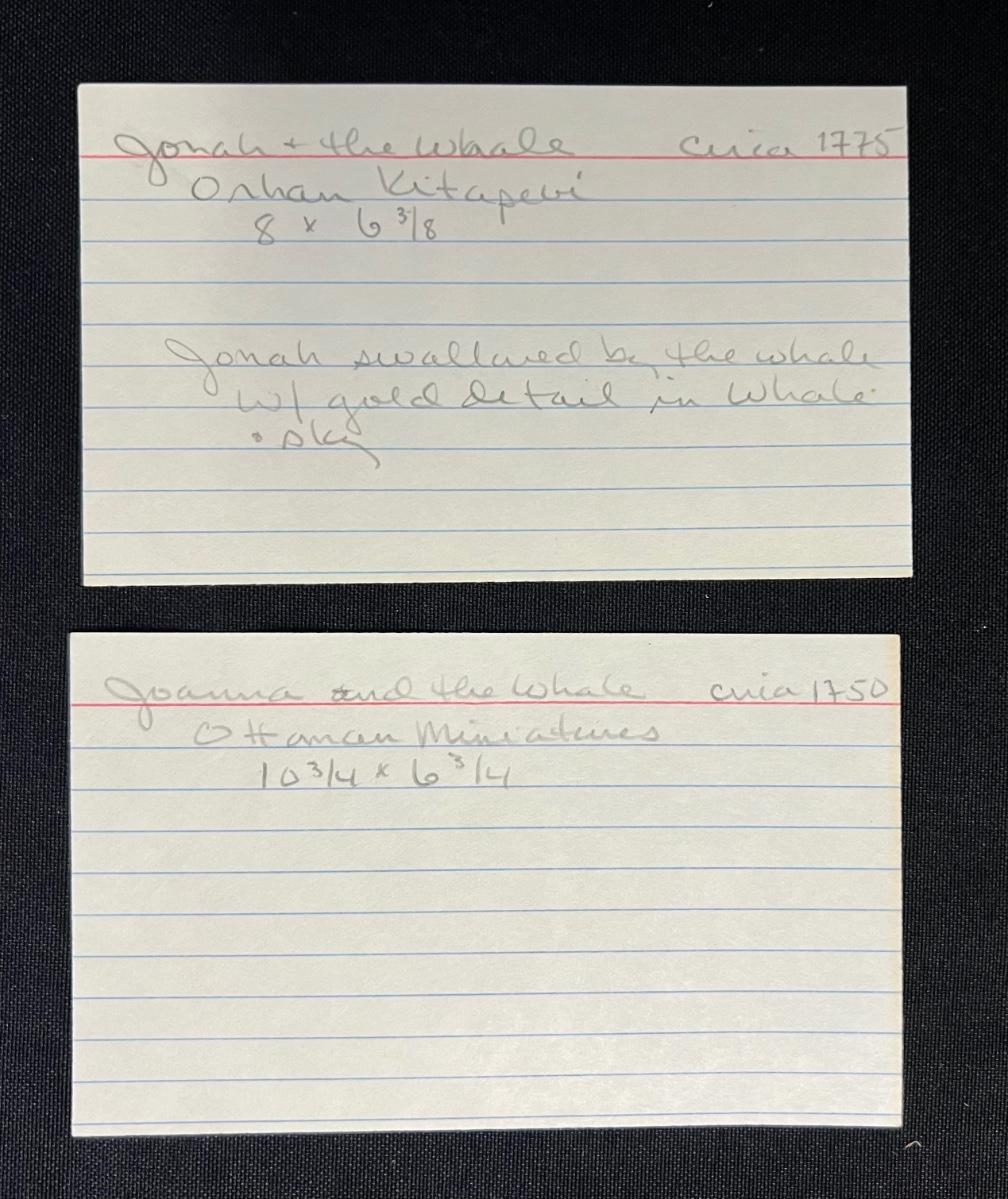 Jonah + the Whale circa 1775
Orhan Kitapevi
8 x 6 3/8
Jonah swallowed by the whale
w/ gold detail in whale
• sky
Joanna and the Whale circa 1750
Ottoman Miniatures
10 3/4 x 6 3/4